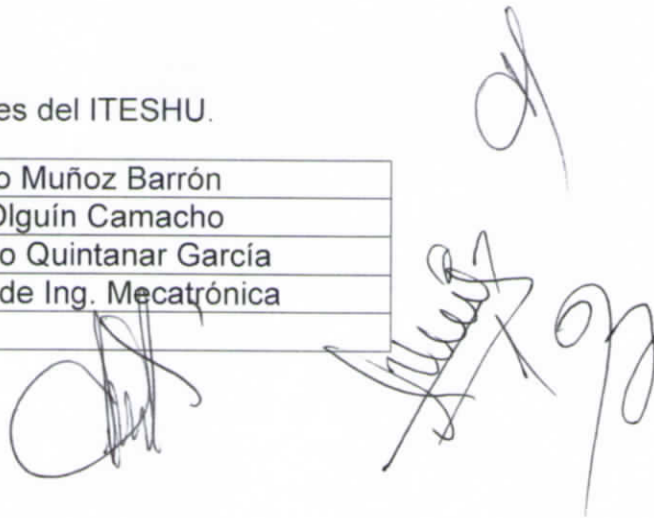 es del ITESHU.
o Muñoz Barrón
Olguín Camacho
o Quintanar García
de Ing. Mecatrónica